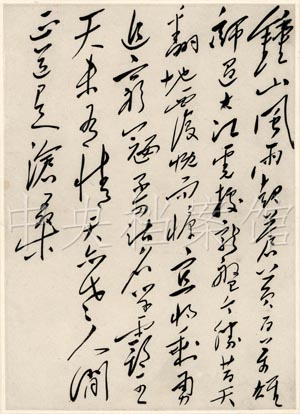 鐘山風雨起蒼黃百萬雄
師過大江虎踞龍盤今勝昔天
翻地覆慨而慷宜將剩勇
追窮寇不可沽名學霸王
天若有情天亦老人間
正道是滄桑
中央档案馆